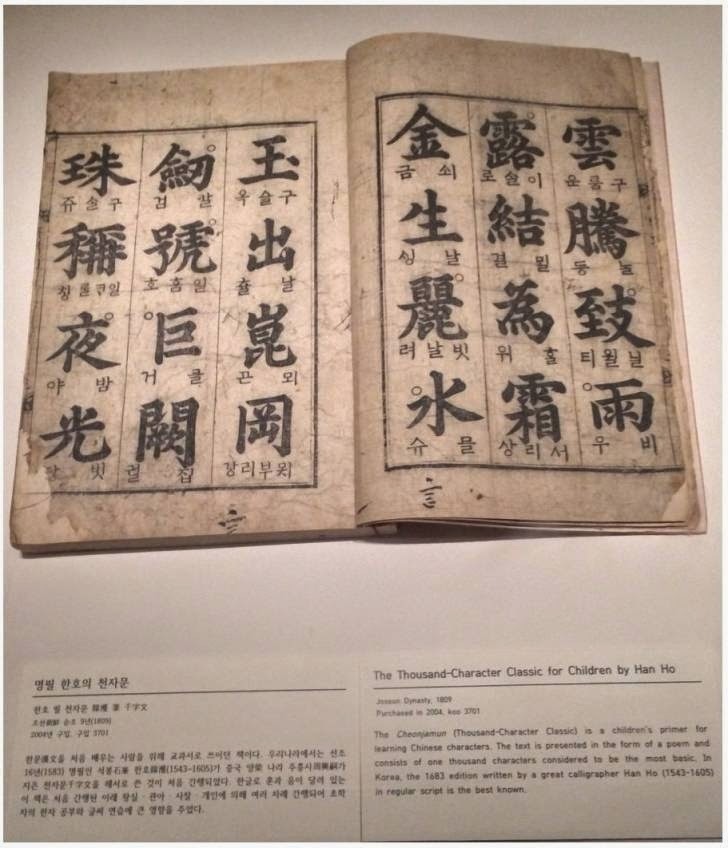 雲 구룸운 騰 ᄂᆞᆯ등 致 닐월티 雨 비우
露 이슬로 結 ᄆᆡᆯ결 為 ᄒᆞᆯ위 霜 서리상
金 쇠금 生 날ᄉᆡᆼ 麗 빗날려 水 믈슈
玉 구슬옥 出 날츌 崑 뫼곤 岡 묏부리강
劒 갈검 號 일홈호 巨 클거 闕 집궐
珠 구슬쥬 稱 일ᄏᆞᆯ칭 夜 밤야 光 빗
명필 한호의 천자문
한호 필 천자문 韓濩 筆 千字文
조선朝鮮 순조 9년(1809)
2004년 구입, 구입 3701
한문漢文을 처음 배우는 사람을 위해 교과서로 쓰이던 책이다. 우리나라에서는 선조
16년(1583) 명필인 석봉石峯 한호韓濩(1543-1605)가 중국 양梁 나라 주흥사周興嗣가
지은 천자문千字文을 해서로 쓴 것이 처음 간행되었다. 한글로 훈과 음이 달려 있는
이 책은 처음 간행된 이래 왕실 · 관아 · 사찰 · 개인에 의해 여러 차례 간행되어 초학
자의 한자 공부와 글씨 연습에 큰 영향을 주었다.
The Thousand-Character Classic for Children by Han Ho
Joseon Dynasty, 1809
Purchased in 2004, koo 3701
The Cheonjamun (Thousand-Character Classic) is a children's primer for
learning Chinese characters. The text is presented in the form of a poem and
consists of one thousand characters considered to be the most basic. In
Korea, the 1683 edition written by a great calligrapher Han Ho (1543-1605)
in regular script is the best known.